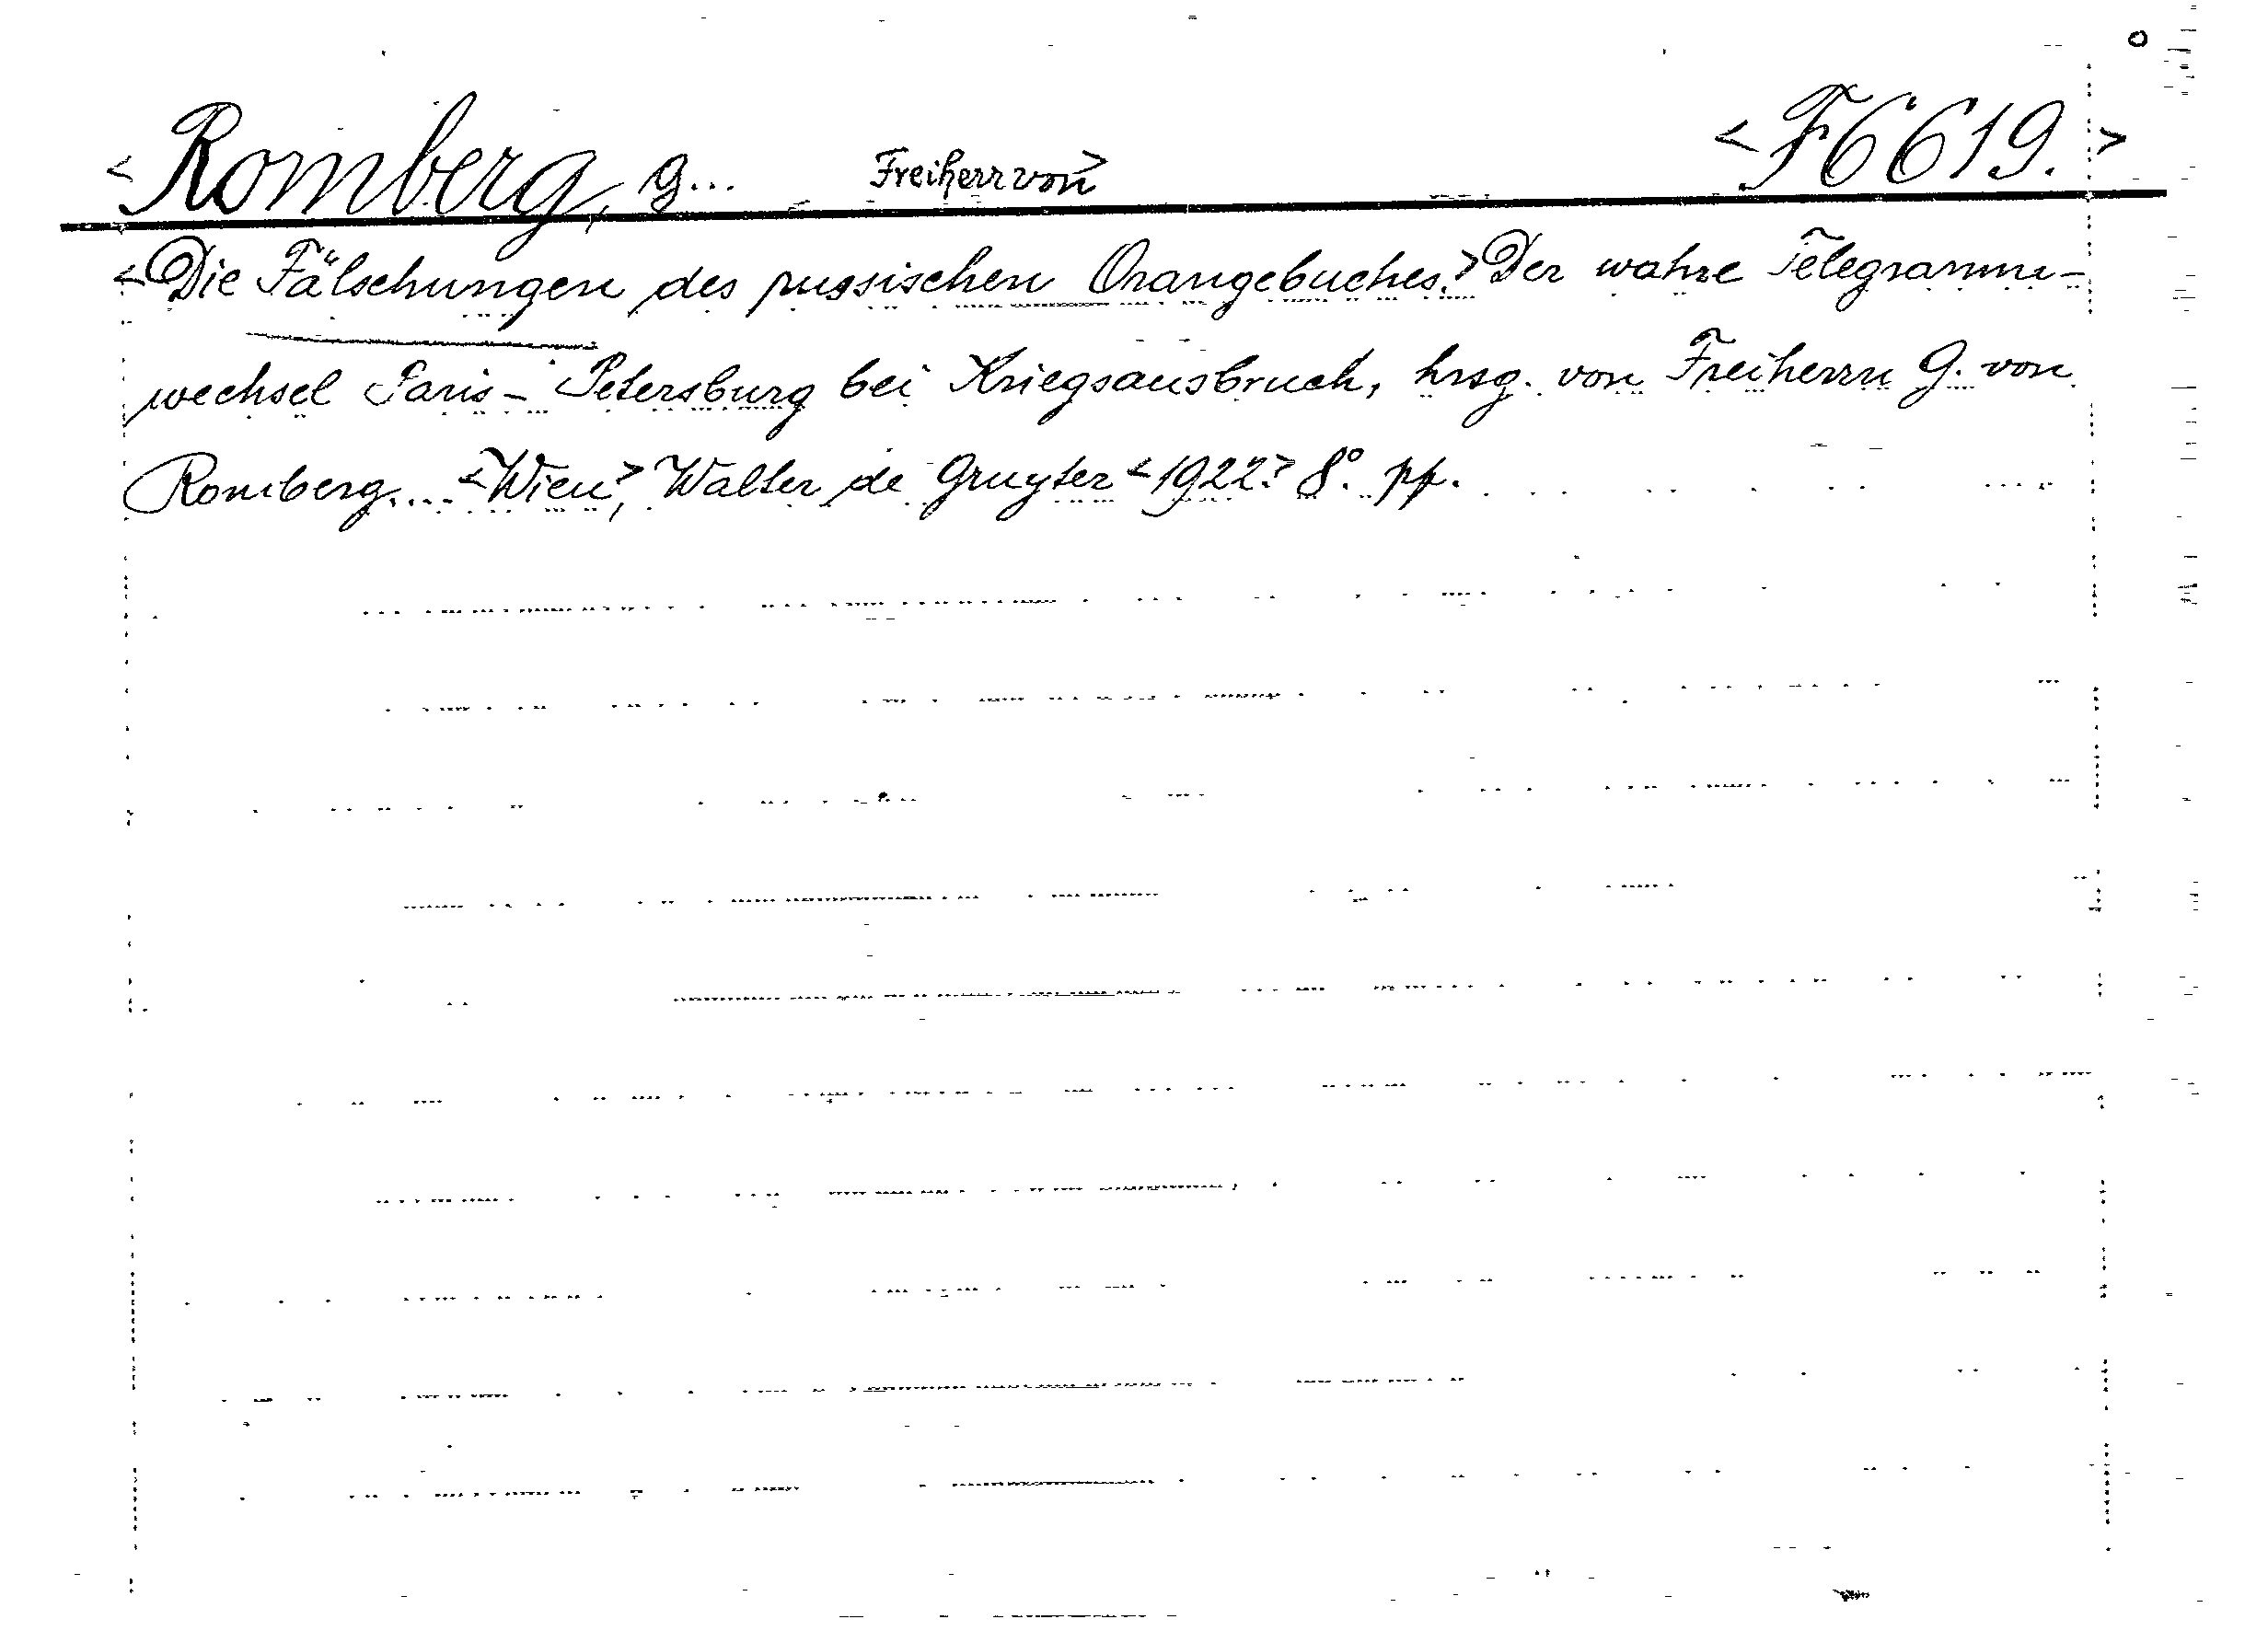 <Romberg, G... Freiherr von> <F6619.>
<Die Fälschungen des russischen Orangebuches.> Der wahre Telegramm-
wechsel Paris - Petersburg bei Kriegsausbruch, hrsg. von Freiherrn G. von
Romberg.... <Wien>, Walter de Gruyter <1922.> 8°. pf.